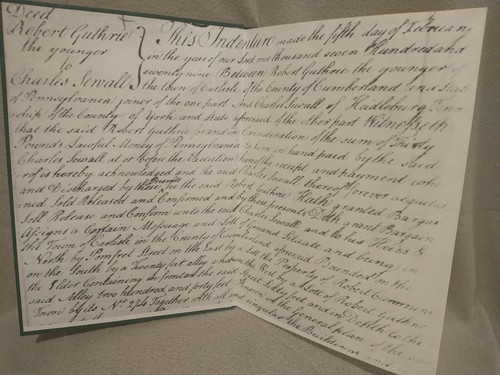 Deed
Robert Guthrie
the younger
to
Charles Sewall
This Indenture made the fifth day of February
in the year of our Lord one thousand seven Hundred and
seventy nine Between Robert Guthrie the younger of
the Town of Carlisle of the County of Cumberland and State
of Pennsylvania joiner of the one part And Charles Sewall of
ship of the County of York and State aforesaid of the other part Witnesseth
that the said Robert Guthrie for and in Consideration of the sum of Thirty
Pounds Lawful Money of Pennsylvania to him in hand paid by the said
Charles Sewall at or before the Execution hereof the receipt and payment
of is hereby acknowledged and the said Charles Sewall thereof forever acquitted
and Discharged by these Presents the said Robert Guthrie Hath granted Bargai
ned Sold Released and Confirmed and by these presents Doth grant Bargain
Sell Release and Confirm unto the said Charles Sewall and to his Heirs &
Assigns a Certain Messuage and Lott of Ground Situate and being in
the Town of Carlisle in the County of Cumberland aforesaid Bounded on the
North by Pomfret Street on the East by a lot the Property of Robert
on the South by a Twenty feet alley and on the West by a Lott of Robert Guthrie
the Elder Containing in front on the said Street Sixty feet and in Depth to the
said Alley two hundred and forty feet in the General plan of the
Town by its No 274 Together with all and singular the Buildings and